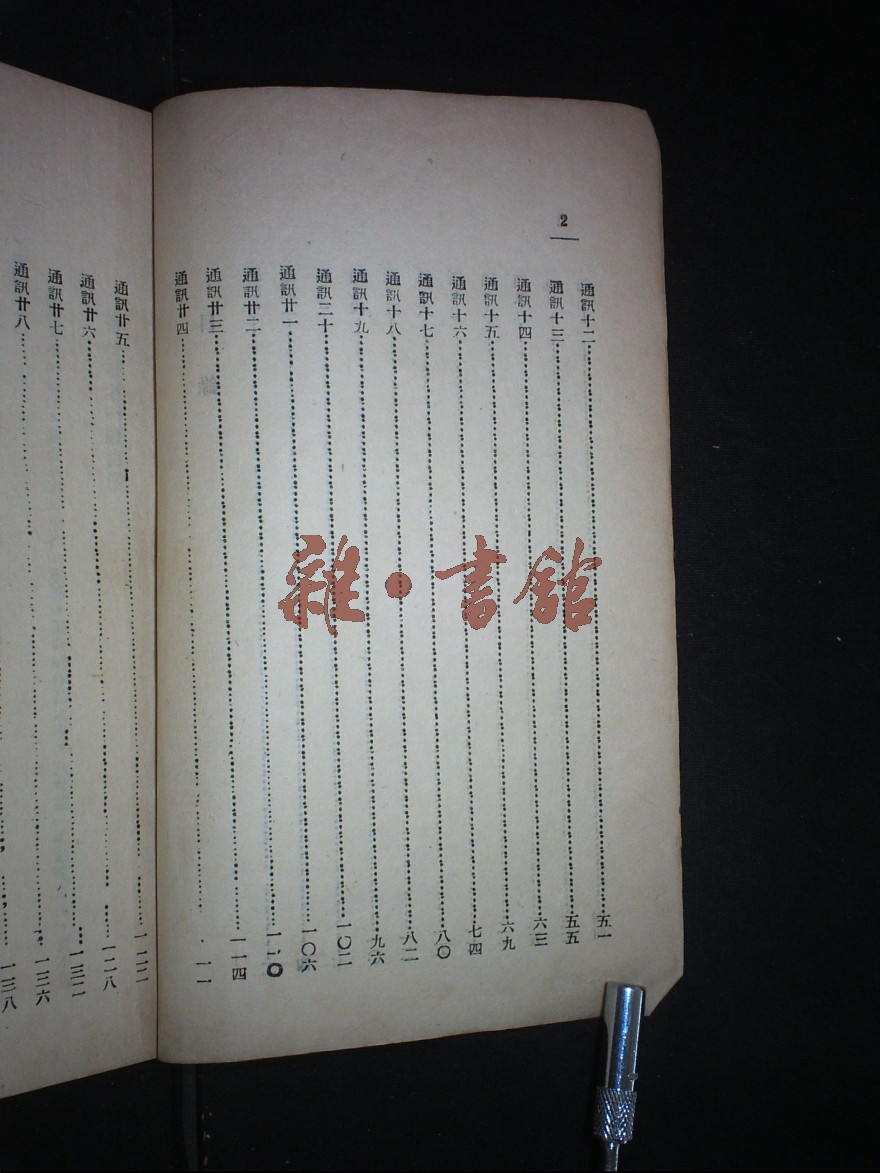 2
通訊十二……五一
通訊十三……五五
通訊十四……六三
通訊十五……六九
通訊十六……七四
通訊十七……八〇
通訊十八……八二
通訊十九……九六
通訊二十……一〇二
通訊廿一……一〇六
通訊廿二……一一〇
通訊廿三……一一四
通訊廿四……
通訊廿五……一二二
通訊廿六……一二八
通訊廿七……一三二
通訊廿八……一三六
一三八
雜·書館